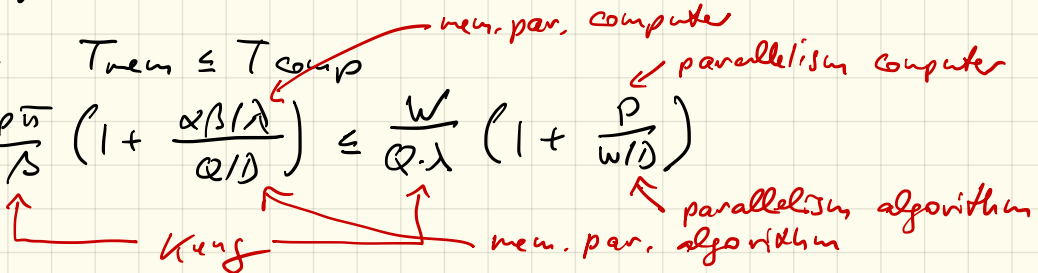 mem. par. computer
T_mem ≤ T_comp
parallelism computer
pπ/β (1 + (αβ/λ)/(Q/D)) ≤ W/(Q·λ) (1 + p/(W/D))
parallelism algorithm
Kung
mem. par. algorithm